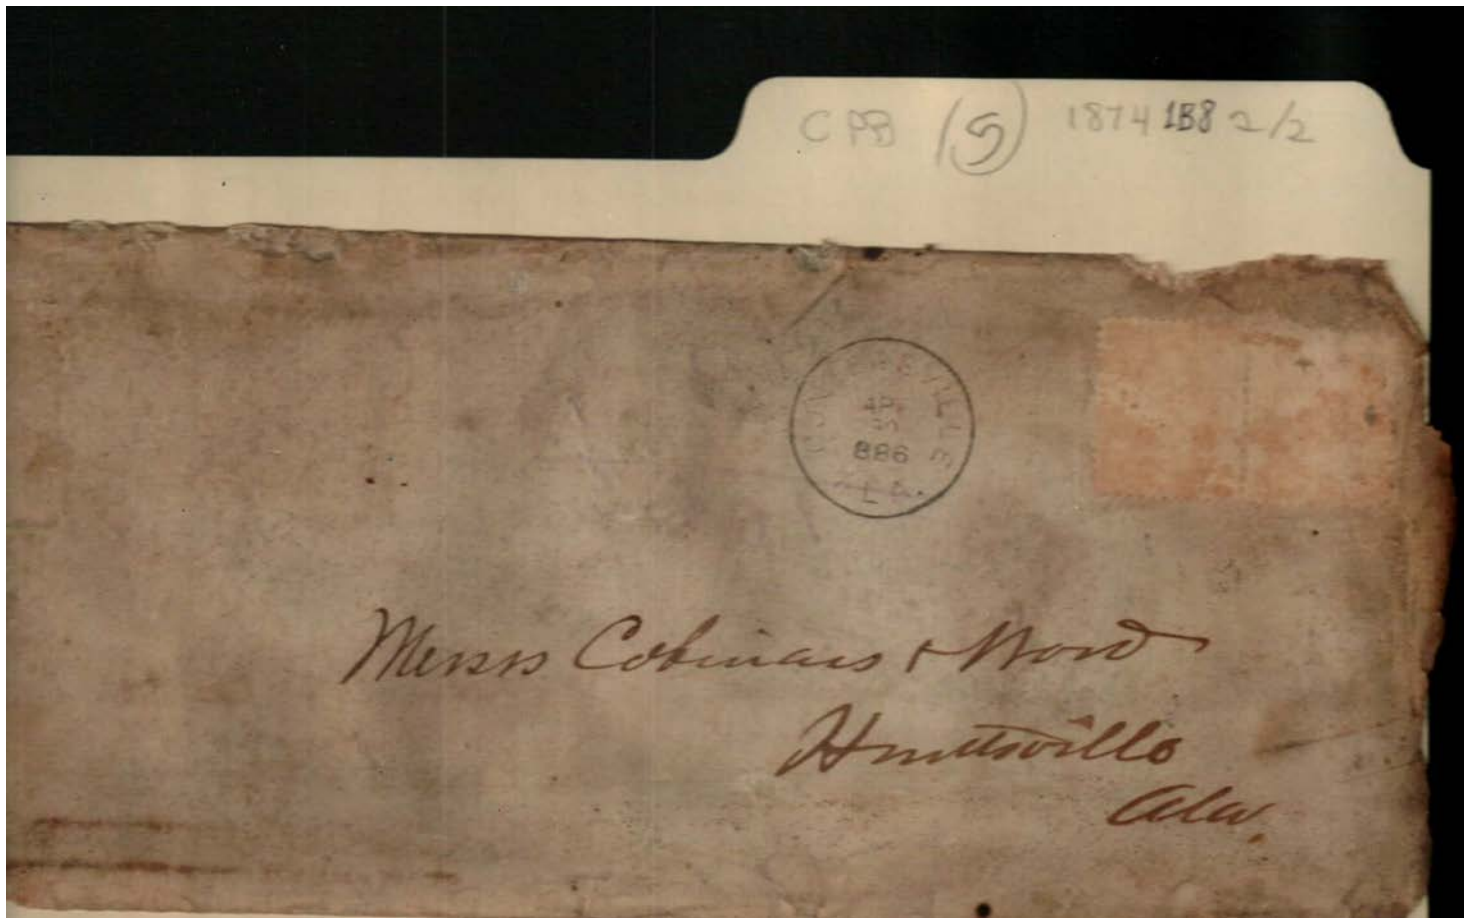 CPB (5) 1874 1B8 2/2
AP
886
LA.
Messrs Cabaniss & Ward
Huntsville
Ala.